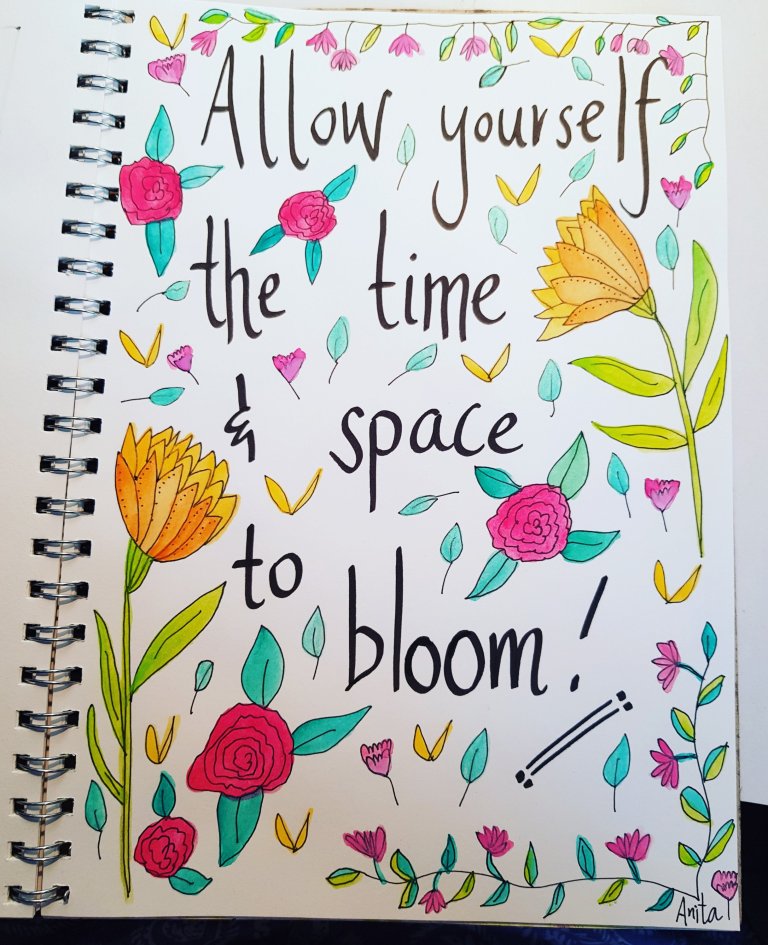 Allow yourself
the time
& space
to
bloom!
Anita